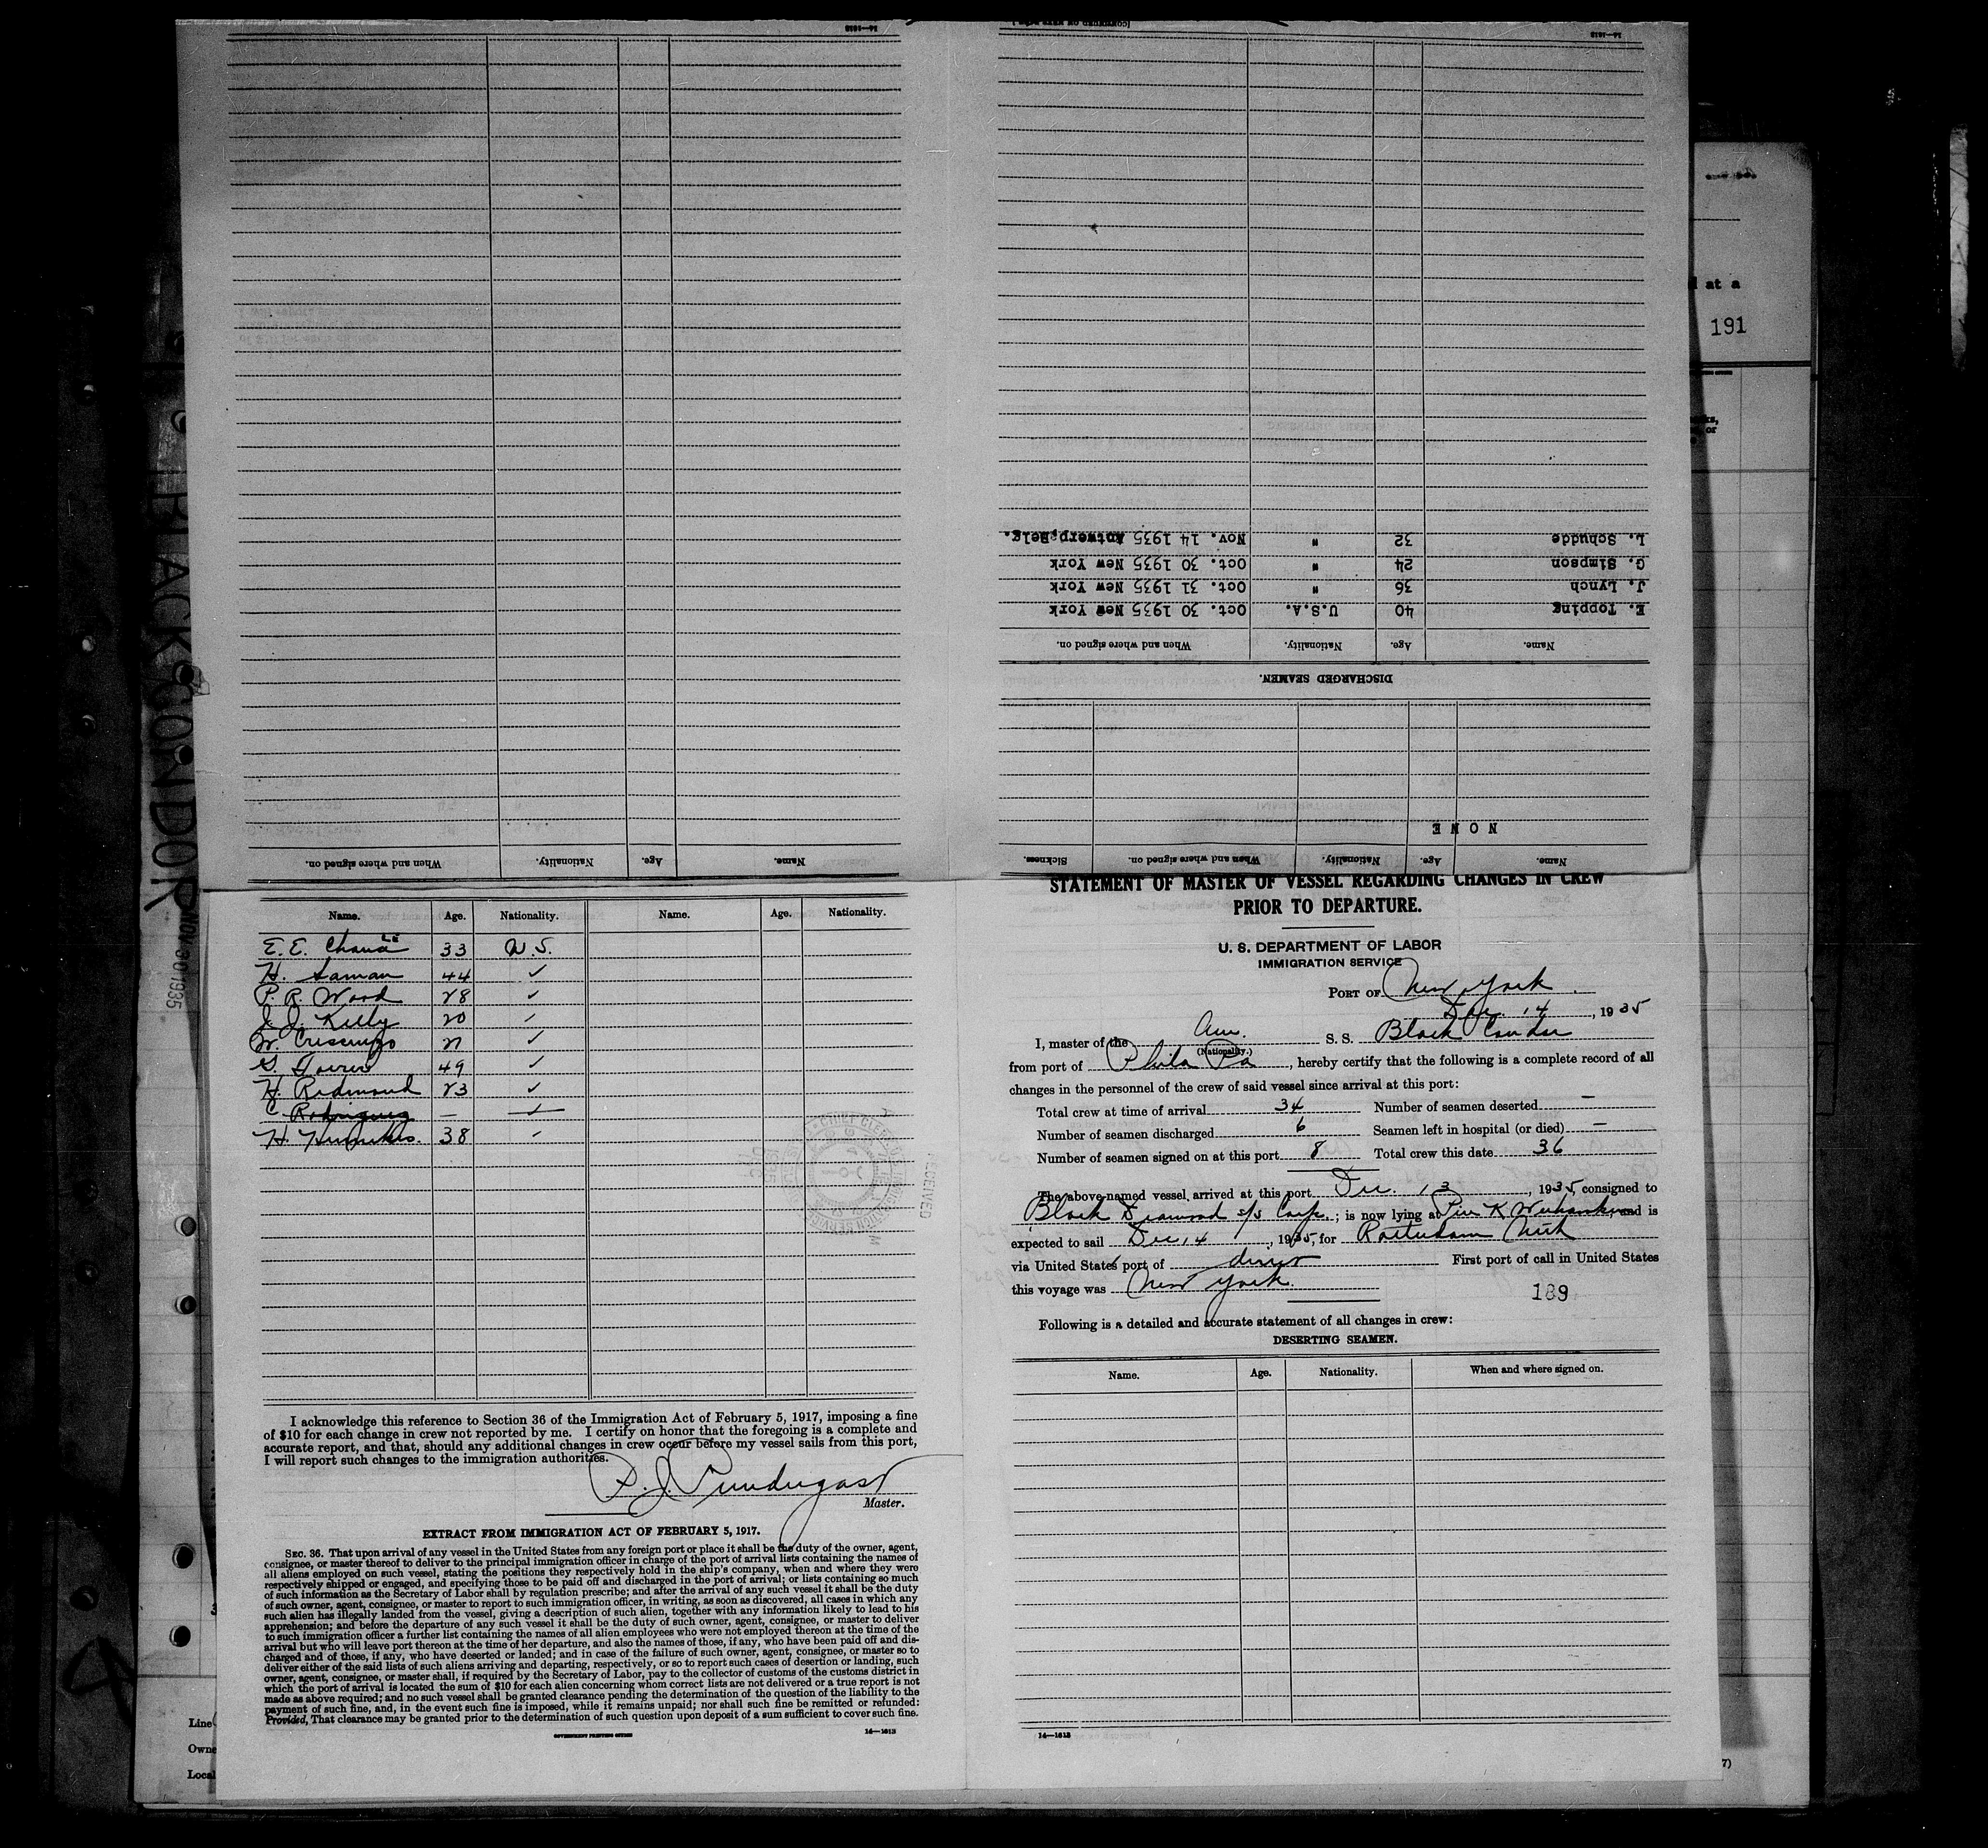 14—1613
14—1613
L. Schudde 32 " Nov. 14 1935 Antwerp, Belg.
G. Simpson 24 " Oct. 30 1935 New York
J. Lynch 36 " Oct. 31 1935 New York
E. Topping 40 U.S.A. Oct. 30 1935 New York
Name. Age. Nationality. When and where signed on.
DISCHARGED SEAMEN.
NONE
Name. Age. Nationality. When and where signed on. Sickness.
Name. Age. Nationality. When and where signed on.
d at a
191
BLACK CONDOR
NOV 30 1935
Name. Age. Nationality. Name. Age. Nationality.
E. E. 33 U.S.
H. Laman 44 ✓
P. R. Wood 28 ✓
J. J. Kelly 20 ✓
W. ✓
G. 49 ✓
H. Redmond 23 ✓
C. Rodriguez — ✓
H. 38 ✓
RECEIVED
I acknowledge this reference to Section 36 of the Immigration Act of February 5, 1917, imposing a fine
of $10 for each change in crew not reported by me. I certify on honor that the foregoing is a complete and
accurate report, and that, should any additional changes in crew occur before my vessel sails from this port,
I will report such changes to the immigration authorities.
Master.
EXTRACT FROM IMMIGRATION ACT OF FEBRUARY 5, 1917.
SEC. 36. That upon arrival of any vessel in the United States from any foreign port or place it shall be the duty of the owner, agent,
consignee, or master thereof to deliver to the principal immigration officer in charge of the port of arrival lists containing the names of
all aliens employed on such vessel, stating the positions they respectively hold in the ship's company, when and where they were
respectively shipped or engaged, and specifying those to be paid off and discharged in the port of arrival; or lists containing so much
of such information as the Secretary of Labor shall by regulation prescribe; and after the arrival of any such vessel it shall be the duty
of such owner, agent, consignee, or master to report to such immigration officer, in writing, as soon as discovered, all cases in which any
such alien has illegally landed from the vessel, giving a description of such alien, together with any information likely to lead to his
apprehension; and before the departure of any such vessel it shall be the duty of such owner, agent, consignee, or master to deliver
to such immigration officer a further list containing the names of all alien employees who were not employed thereon at the time of the
arrival but who will leave port thereon at the time of her departure, and also the names of those, if any, who have been paid off and dis-
charged and of those, if any, who have deserted or landed; and in case of the failure of such owner, agent, consignee, or master so to
deliver either of the said lists of such aliens arriving and departing, respectively, or so to report such cases of desertion or landing, such
owner, agent, consignee, or master shall, if required by the Secretary of Labor, pay to the collector of customs of the customs district in
which the port of arrival is located the sum of $10 for each alien concerning whom correct lists are not delivered or a true report is not
made as above required; and no such vessel shall be granted clearance pending the determination of the question of the liability to the
payment of such fine, and, in the event such fine is imposed, while it remains unpaid; nor shall such fine be remitted or refunded:
Provided, That clearance may be granted prior to the determination of such question upon deposit of a sum sufficient to cover such fine.
GOVERNMENT PRINTING OFFICE 14—1613
STATEMENT OF MASTER OF VESSEL REGARDING CHANGES IN CREW
PRIOR TO DEPARTURE.
U. S. DEPARTMENT OF LABOR
IMMIGRATION SERVICE
PORT OF New York
Dec. 14, 1935
I, master of the Am. S. S. Black Condor
(Nationality.)
from port of Phila Pa, hereby certify that the following is a complete record of all
changes in the personnel of the crew of said vessel since arrival at this port:
Total crew at time of arrival 34 Number of seamen deserted —
Number of seamen discharged 6 Seamen left in hospital (or died) —
Number of seamen signed on at this port 8 Total crew this date 36
The above-named vessel arrived at this port Dec. 13, 1935, consigned to
Black Diamond S/S Corp.; is now lying at Pier K Weehawken and is
expected to sail Dec 14, 1935, for Rotterdam Neth
via United States port of direct First port of call in United States
this voyage was New York.
189
Following is a detailed and accurate statement of all changes in crew:
DESERTING SEAMEN.
Name. Age. Nationality. When and where signed on.
14—1613
Line
Owne
Local
7)